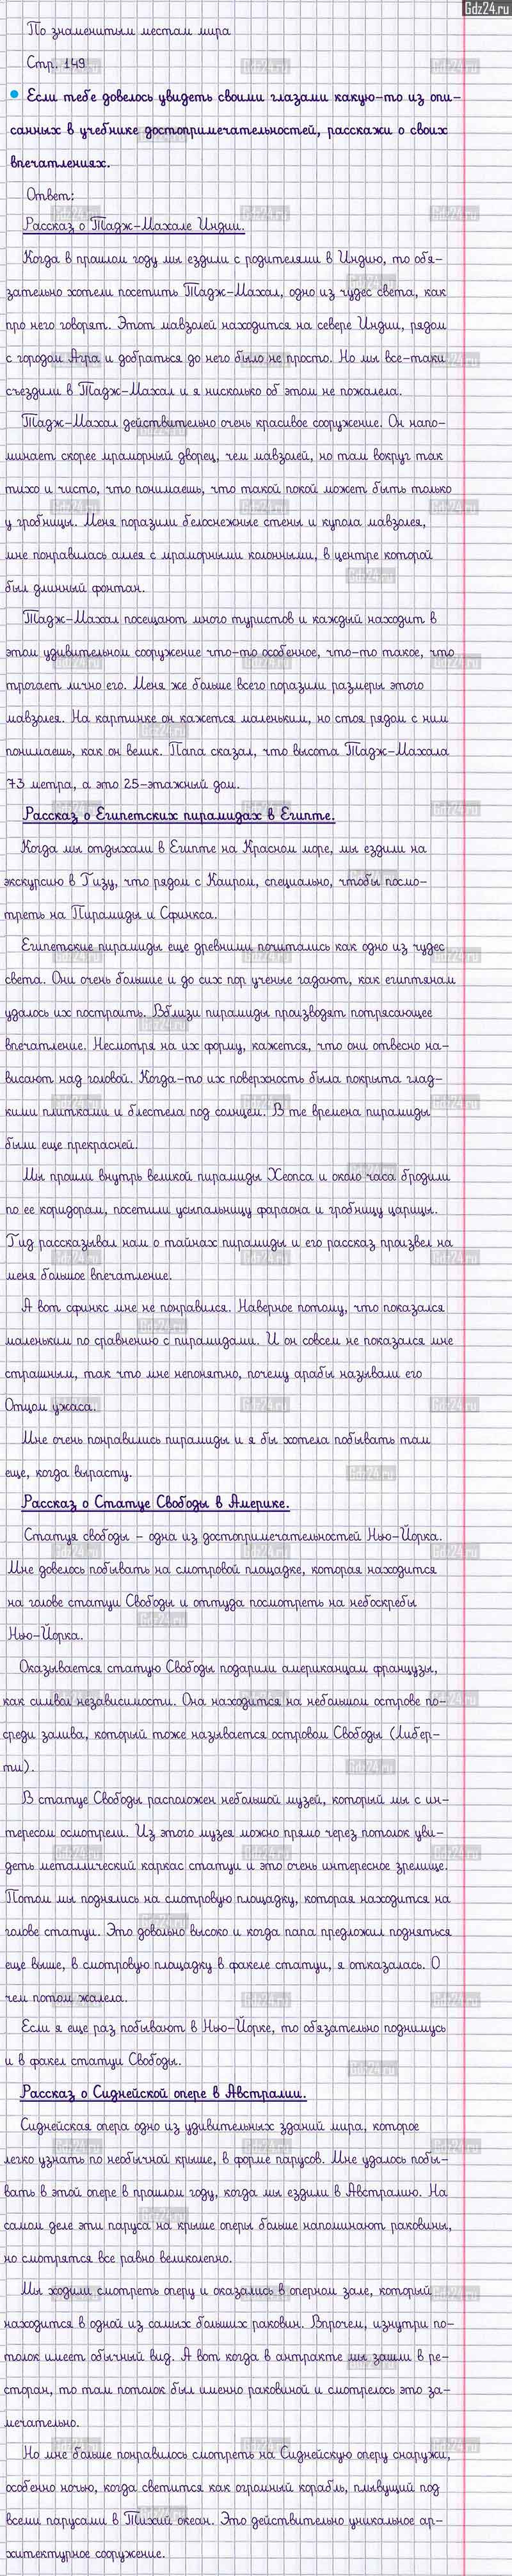 Gdz24.ru
По знаменитым местам мира
Стр. 149
Если тебе довелось увидеть своими глазами какую-то из опи-
санных в учебнике достопримечательностей, расскажи о своих
впечатлениях.
Ответ:
Рассказ о Тадж-Махале Индии.
Когда в прошлом году мы ездили с родителями в Индию, то обя-
зательно хотели посетить Тадж-Махал, одно из чудес света, как
про него говорят. Этот мавзолей находится на севере Индии, рядом
с городом Агра и добраться до него было не просто. Но мы все-таки
съездили в Тадж-Махал и я нисколько об этом не пожалела.
Тадж-Махал действительно очень красивое сооружение. Он напо-
минает скорее мраморный дворец, чем мавзолей, но там вокруг так
тихо и чисто, что понимаешь, что такой покой может быть только
у гробницы. Меня поразили белоснежные стены и купола мавзолея,
мне понравилась аллея с мраморными колонными, в центре которой
был длинный фонтан.
Тадж-Махал посещают много туристов и каждый находит в
этом удивительном сооружение что-то особенное, что-то такое, что
трогает лично его. Меня же больше всего поразили размеры этого
мавзолея. На картинке он кажется маленьким, но стоя рядом с ним
понимаешь, как он велик. Папа сказал, что высота Тадж-Махала
73 метра, а это 25-этажный дом.
Рассказ о Египетских пирамидах в Египте.
Когда мы отдыхали в Египте на Красном море, мы ездили на
экскурсию в Гизу, что рядом с Каиром, специально, чтобы посмо-
треть на Пирамиды и Сфинкса.
Египетские пирамиды еще древними почитались как одно из чудес
света. Они очень большие и до сих пор ученые гадают, как египтянам
удалось их построить. Вблизи пирамиды производят потрясающее
впечатление. Несмотря на их форму, кажется, что они отвесно на-
висают над головой. Когда-то их поверхность была покрыта глад-
кими плитками и блестела под солнцем. В те времена пирамиды
были еще прекрасней.
Мы прошли внутрь великой пирамиды Хеопса и около часа бродили
по ее коридорам, посетили усыпальницу фараона и гробницу царицы.
Гид рассказывал нам о тайнах пирамиды и его рассказ произвел на
меня большое впечатление.
А вот сфинкс мне не понравился. Наверное потому, что показался
маленьким по сравнению с пирамидами. И он совсем не показался мне
страшным, так что мне непонятно, почему арабы называли его
Отцом ужаса.
Мне очень понравились пирамиды и я бы хотела побывать там
еще, когда вырасту.
Рассказ о Статуе Свободы в Америке.
Статуя свободы – одна из достопримечательностей Нью-Йорка.
Мне довелось побывать на смотровой площадке, которая находится
на голове статуи Свободы и оттуда посмотреть на небоскребы
Нью-Йорка.
Оказывается статую Свободы подарили американцам французы,
как символ независимости. Она находится на небольшом острове по-
среди залива, который тоже называется островом Свободы (Либер-
ти).
В статуе Свободы расположен небольшой музей, который мы с ин-
тересом осмотрели. Из этого музея можно прямо через потолок уви-
деть металлический каркас статуи и это очень интересное зрелище.
Потом мы поднялись на смотровую площадку, которая находится на
голове статуи. Это довольно высоко и когда папа предложил подняться
еще выше, в смотровую площадку в факеле статуи, я отказалась. О
чем потом жалела.
Если я еще раз побывают в Нью-Йорке, то обязательно поднимусь
и в факел статуи Свободы.
Рассказ о Сиднейской опере в Австралии.
Сиднейская опера одно из удивительных зданий мира, которое
легко узнать по необычной крыше, в форме парусов. Мне удалось побы-
вать в этой опере в прошлом году, когда мы ездили в Австралию. На
самом деле эти паруса на крыше оперы больше напоминают раковины,
но смотрятся все равно великолепно.
Мы ходили смотреть оперу и оказались в оперном зале, который
находится в одной из самых больших раковин. Впрочем, изнутри по-
толок имеет обычный вид. А вот когда в антракте мы зашли в ре-
сторан, то там потолок был именно раковиной и смотрелось это за-
мечательно.
Но мне больше понравилось смотреть на Сиднейскую оперу снаружи,
особенно ночью, когда светится как огромный корабль, плывущий под
всеми парусами в Тихий океан. Это действительно уникальное ар-
хитектурное сооружение.